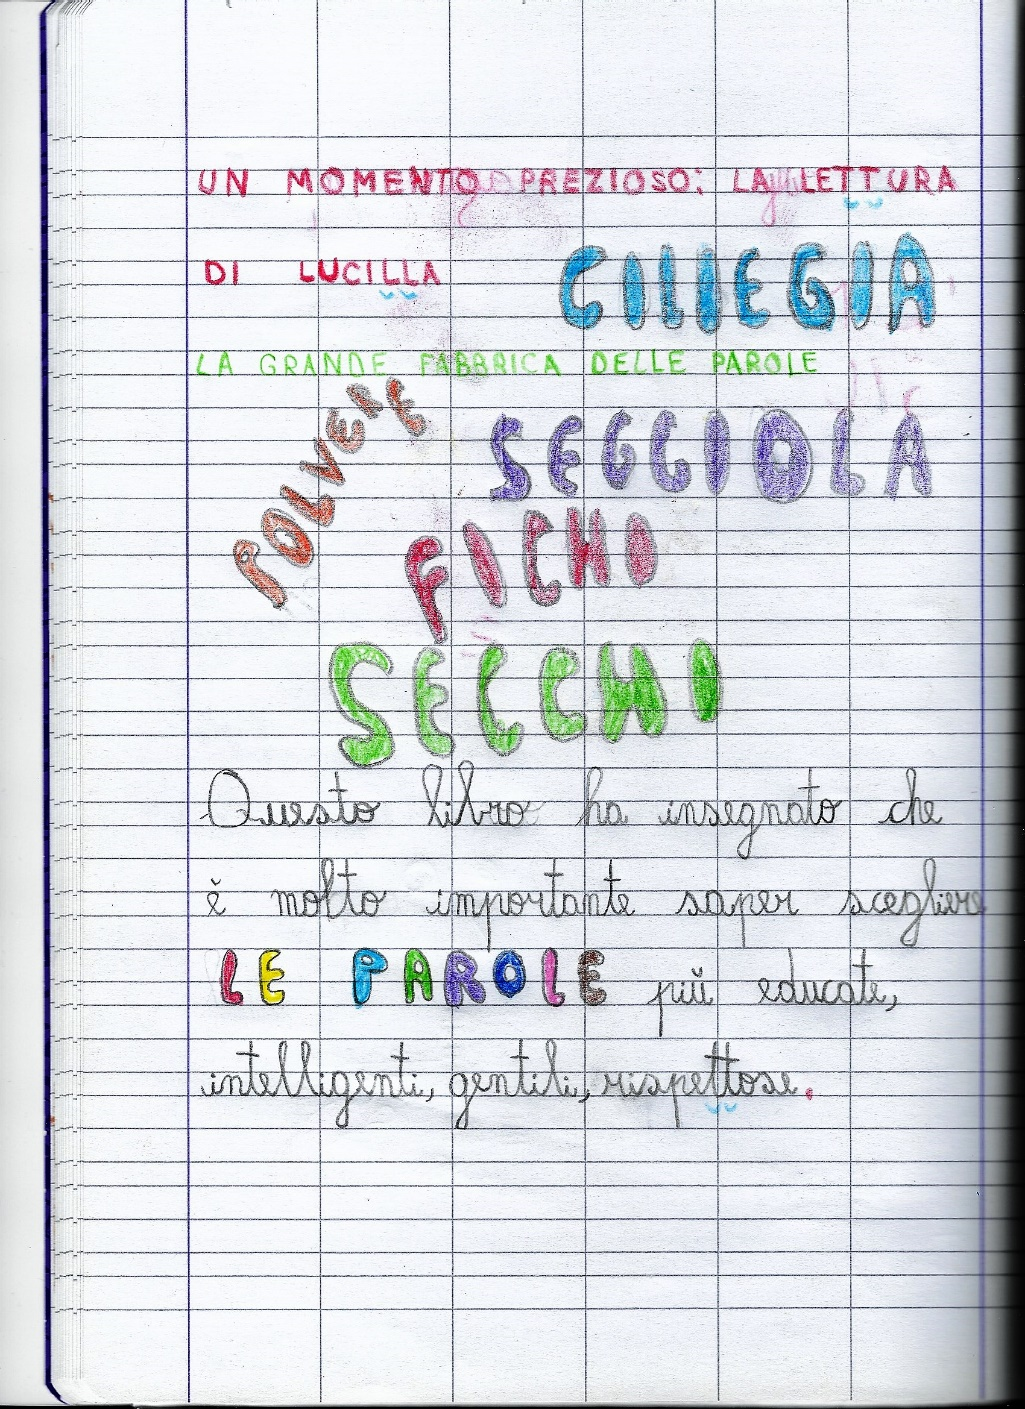 UN MOMENTO PREZIOSO: LA LETTURA
DI LUCILLA
CILIEGIA
LA GRANDE FABBRICA DELLE PAROLE
POLVERE
SEGGIOLA
FICHI
SECCHI
Questo libro ha insegnato che
è molto importante saper scegliere
LE PAROLE più educate,
intelligenti, gentili, rispettose.